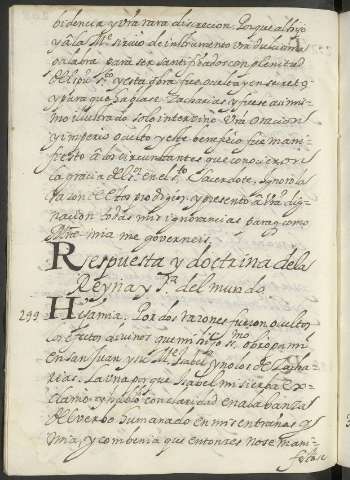 videncia y vra rara discrecion. Porque al hijo
y a la Me sirvio de instrumento vra dulcissima
palabra para ser santificados con plenitud
del spu sto y esta obra fue oculta y en secreto
y para que hablase Zacharias y fuese asimis-
mo illustrado solo intervino vra oracion
y imperio oculto y este beneficio fue mani-
fiesto a los circunstantes que conocieron
la gracia del Sr en el sto Sacerdote. ignoro la
raçon de estos prodigios, y presento a vra dig-
nacion todas mis ignorancias para q como
Mra mia me governeis.
Respuesta y doctrina de la
Reyna y Sra del mundo
299 Hija mia. Por dos raçones fueron ocultos
los efectos divinos que mi hijo ssmo obro por mi
en san Juan y su Me Isabel y no los de Zacha-
rias. La una porque Isabel mi sierva ex-
clamo y hablo con claridad en alabanza
del verbo humanado en mis entrañas y
mia, y combenia que entonces no se mani-
festase